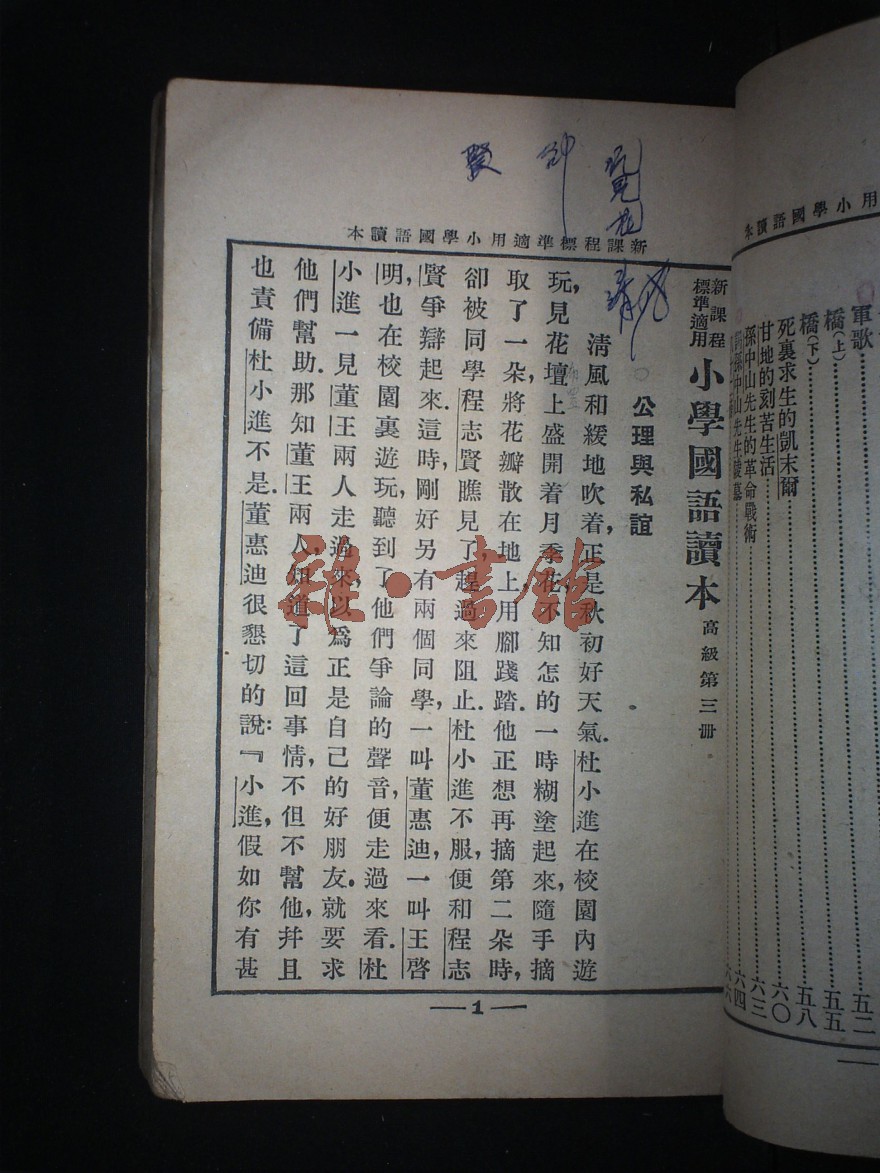 新課程標準適用小學國語讀本
新課程
標準適用
小學國語讀本
高級第三册
公理與私誼
清風和緩地吹着,正是秋初好天氣.杜小進在校園內遊
玩,見花壇上盛開着月季花,不知怎的一時糊塗起來,隨手摘
取了一朵,將花瓣散在地上用腳踐踏.他正想再摘第二朵時,
卻被同學程志賢瞧見了,趕過來阻止.杜小進不服,便和程志
賢爭辯起來.這時,剛好另有兩個同學,一叫董惠迪,一叫王啓
明,也在校園裏遊玩,聽到了他們爭論的聲音,便走過來看.杜
小進一見董王兩人走過來,以爲正是自己的好朋友.就要求
他們幫助.那知董王兩人,知道了這回事情,不但不幫他,幷且
也責備杜小進不是.董惠迪很懇切的說:『小進,假如你有甚
—1—
用小學國語讀本
軍歌……五二
橋(上)……五五
橋(下)……五八
死裏求生的凱末爾……六〇
甘地的刻苦生活……六三
孫中山先生的革命戰術……六四
孫中山先生陵墓
賢
雜·書館